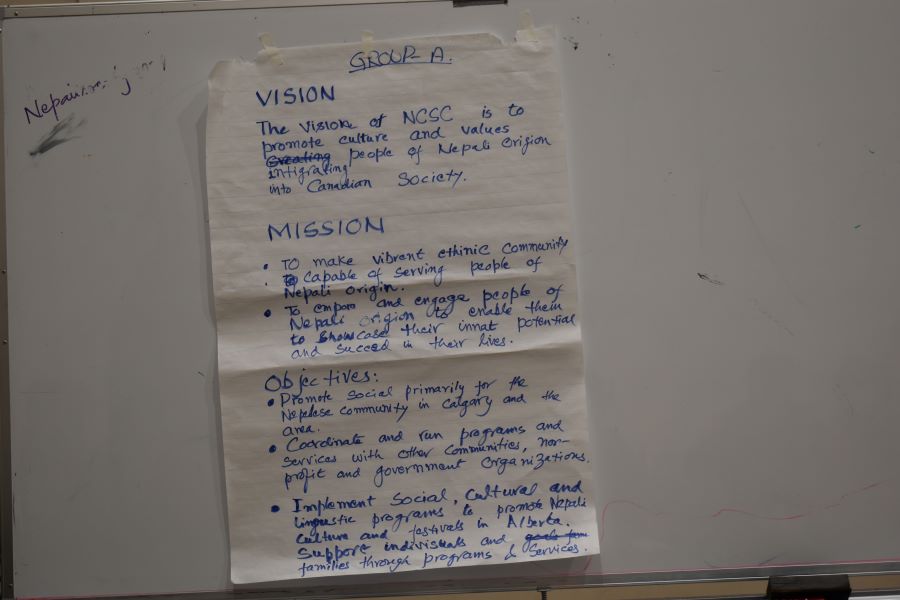 GROUP A.
VISION
The Vision of NCSC is to
promote culture and values
people of Nepali origion
intigrating
into Canadian Society.
MISSION
• TO make vibrent ethinic Community
• capable of serving people of
Nepali origin.
• To empore and engage people of
Nepali origion to enable them
to showcase their innat potential
and succeed in their lives.
Objectives:
• Promote Social primarily for the
Nepelese community in Calgary and the
area.
• Coordinate and run programs and
services with other Communities, non-
profit and government organizations.
• Implement Social, Cultural and
linguistic programs to promote Nepali
Culture and festivals in Alberta.
Support individuals and
families through programs & Services.